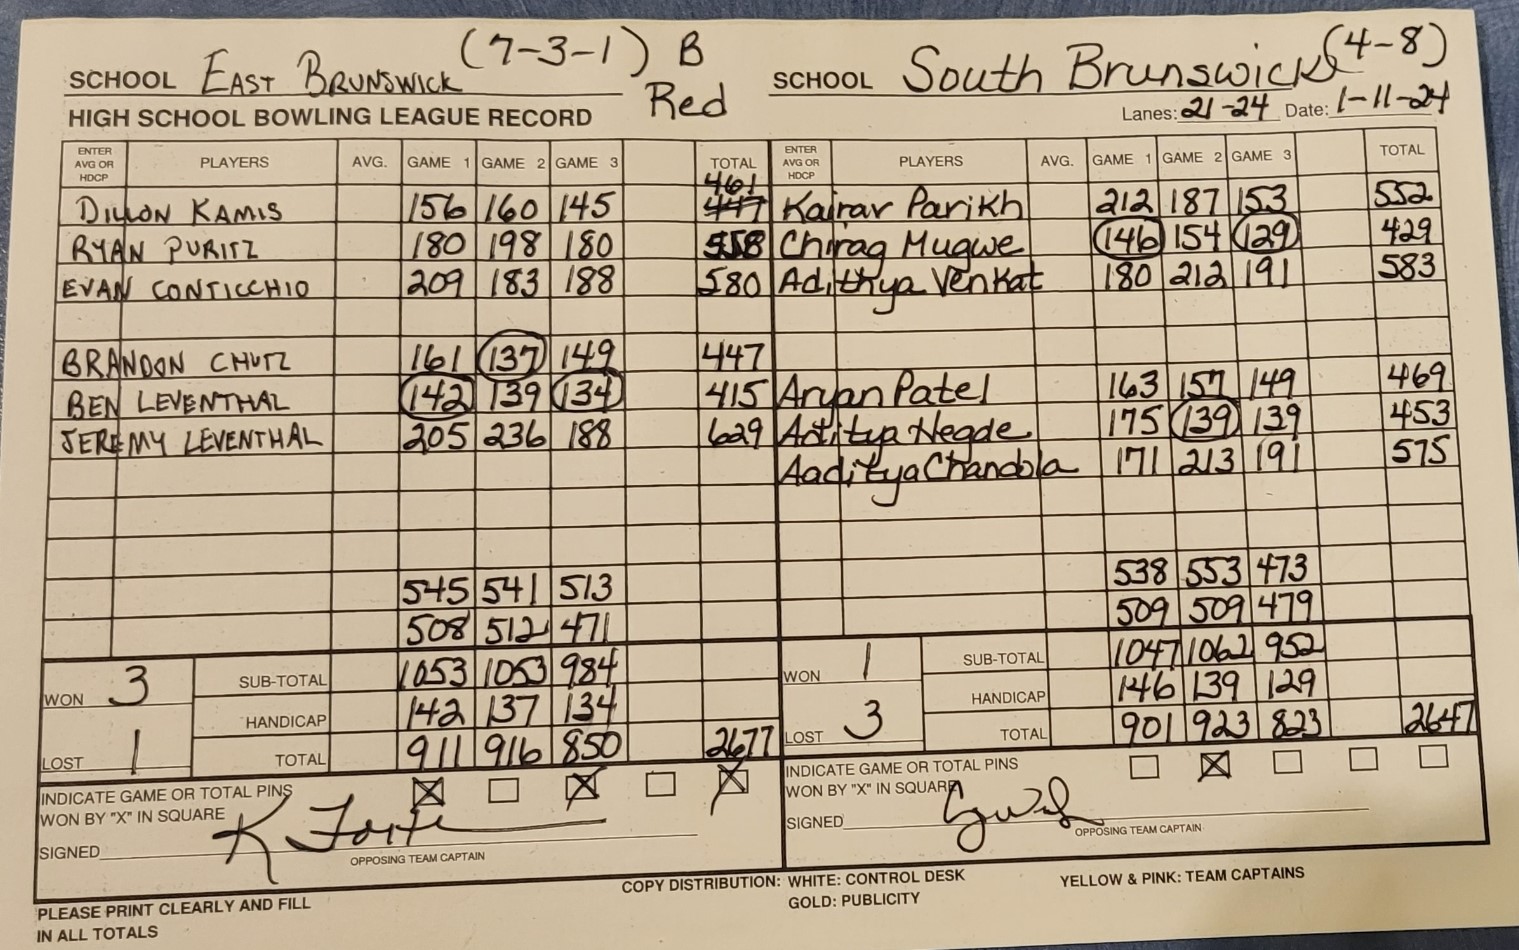 SCHOOL EAST BRUNSWICK (7-3-1) B Red SCHOOL South Brunswick (4-8)
HIGH SCHOOL BOWLING LEAGUE RECORD Lanes: 21-24 Date: 1-11-24
ENTER AVG OR HDCP PLAYERS AVG. GAME 1 GAME 2 GAME 3 TOTAL ENTER AVG OR HDCP PLAYERS AVG. GAME 1 GAME 2 GAME 3 TOTAL
461
DILLON KAMIS 156 160 145 447 Kairav Parikh 212 187 153 552
RYAN PURITZ 180 198 180 558 Chirag Mugwe 146 154 129 429
EVAN CONTICCHIO 209 183 188 580 Adithya Venkat 180 212 191 583
BRANDON CHUTZ 161 137 149 447
BEN LEVENTHAL 142 139 134 415 Aryan Patel 163 157 149 469
JEREMY LEVENTHAL 205 236 188 629 Aditya Hegde 175 139 139 453
Aaditya Chandola 171 213 191 575
545 541 513 538 553 473
508 512 471 509 509 479
WON 3 SUB-TOTAL 1053 1053 984 WON 1 SUB-TOTAL 1047 1062 952
HANDICAP 142 137 134 HANDICAP 146 139 129
LOST 1 TOTAL 911 916 850 2677 LOST 3 TOTAL 901 923 823 2647
INDICATE GAME OR TOTAL PINS X X X INDICATE GAME OR TOTAL PINS X
WON BY "X" IN SQUARE WON BY "X" IN SQUARE
SIGNED K Forte SIGNED
OPPOSING TEAM CAPTAIN OPPOSING TEAM CAPTAIN
COPY DISTRIBUTION: WHITE: CONTROL DESK YELLOW & PINK: TEAM CAPTAINS
GOLD: PUBLICITY
PLEASE PRINT CLEARLY AND FILL
IN ALL TOTALS